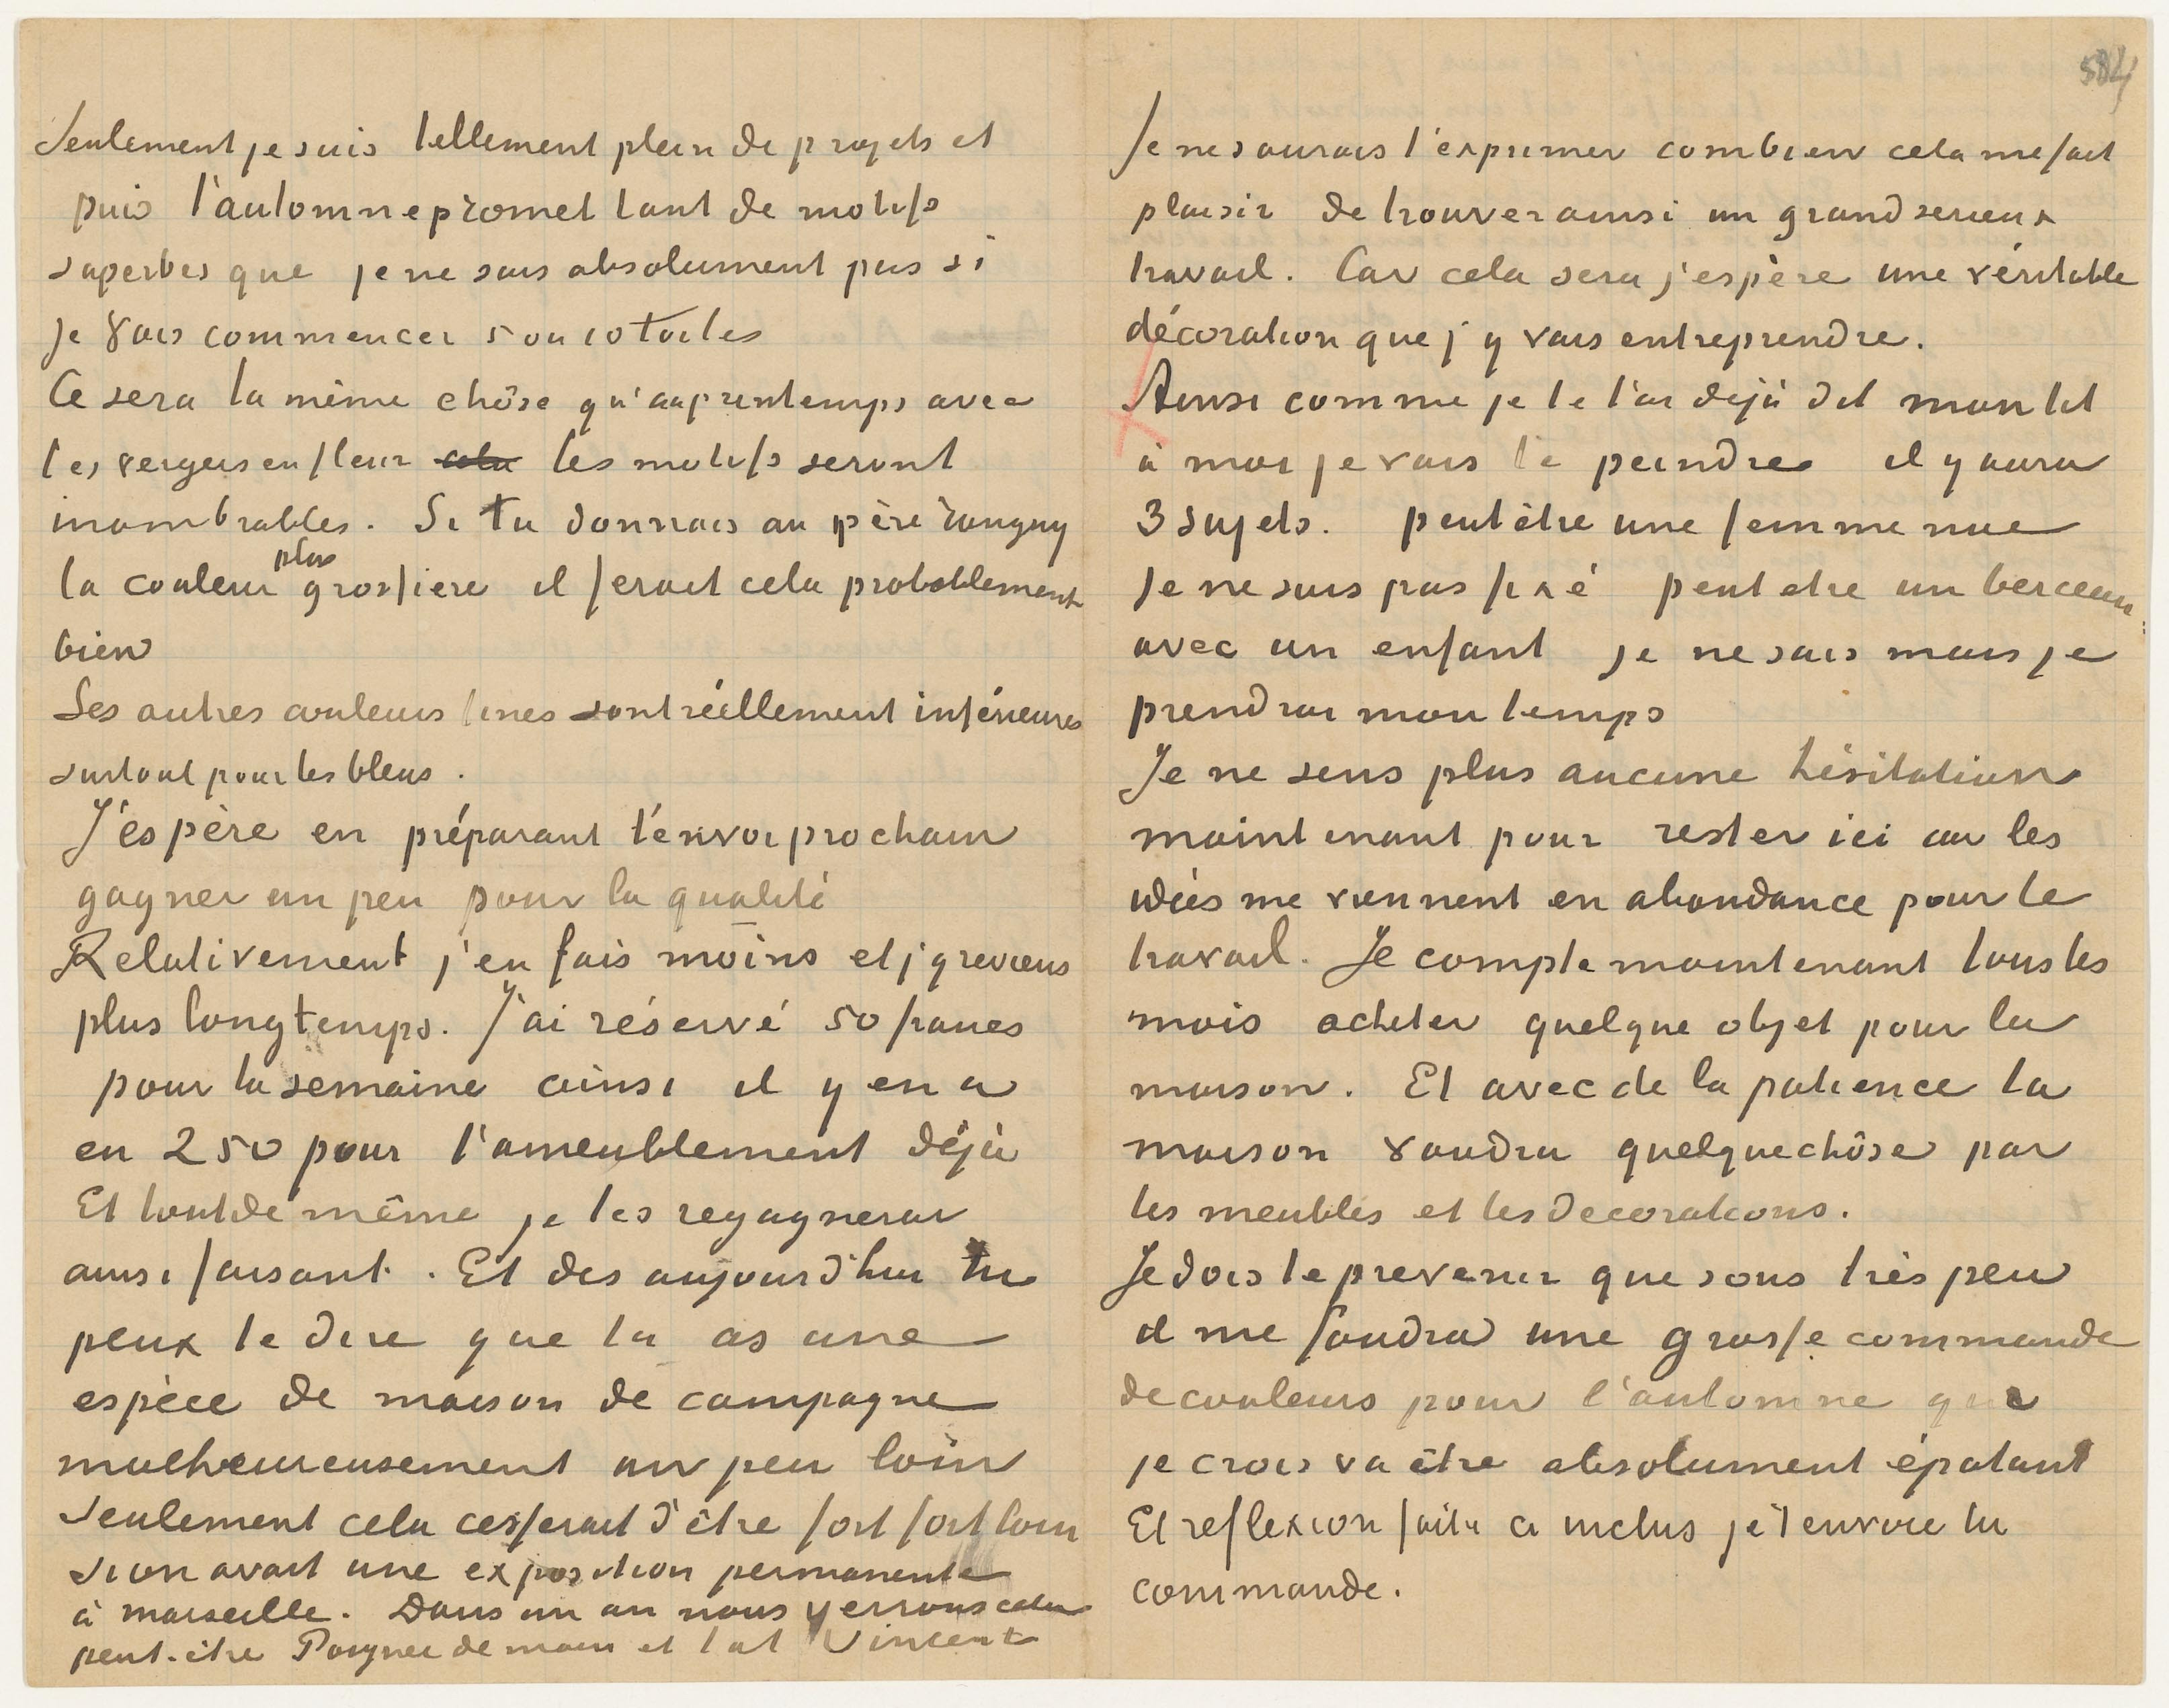 Seulement je suis tellement plein de projets et
puis l'automne promet tant de motifs
superbes que je ne sais absolument pas si
je vais commencer 5 ou 10 toiles
Ce sera la même chôse qu'au printemps avec
les vergers en fleur cela les motifs seront
inombrables. Si tu donnais au père Tanguy
la couleur plus grossiere il ferait cela probablement
bien
Ses autres couleurs fines sont réellement inférieures
surtout pour les bleus.
J'éspère en préparant l'envoi prochain
gagner un peu pour la qualité
Relativement j'en fais moins et j'y reviens
plus longtemps. J'ai réservé 50 francs
pour la semaine ainsi il y en a
en 250 pour l'ameublement déjà
Et tout de même je les regagnerai
ainsi faisant. Et des aujourd'hui tu
peux te dire que tu as une
espèce de maison de campagne
malheureusement un peu loin
Seulement cela cesserait d'être fort fort loin
si on avait une exposition permanente
à marseille. Dans un an nous verrons cela
peut-être Poignée de main et t. à t. Vincent
584
Je ne saurais t'exprimer combien cela me fait
plaisir de trouver ainsi un grand serieux
travail. Car cela sera j'espère une véritable
décoration que j'y vais entreprendre.
Ainsi comme je te l'ai déjà dit mon lit
à moi je vais le peindre il y aura
3 sujets. peut être une femme nue
je ne suis pas fixé peut etre un berceau
avec un enfant je ne sais mais je
prendrai mon temps
Je ne sens plus aucune hésitation
maintenant pour rester ici car les
idées me viennent en abondance pour le
travail. Je compte maintenant tous les
mois acheter quelque objet pour la
maison. Et avec de la patience la
maison vaudra quelquechôse par
les meubles et les decorations.
Je dois te prevenir que sous très peu
il me faudra une grosse commande
de couleurs pour l'automne que
je crois va être absolument épatant
Et reflexion faite ci inclus je t'envoie la
commande.